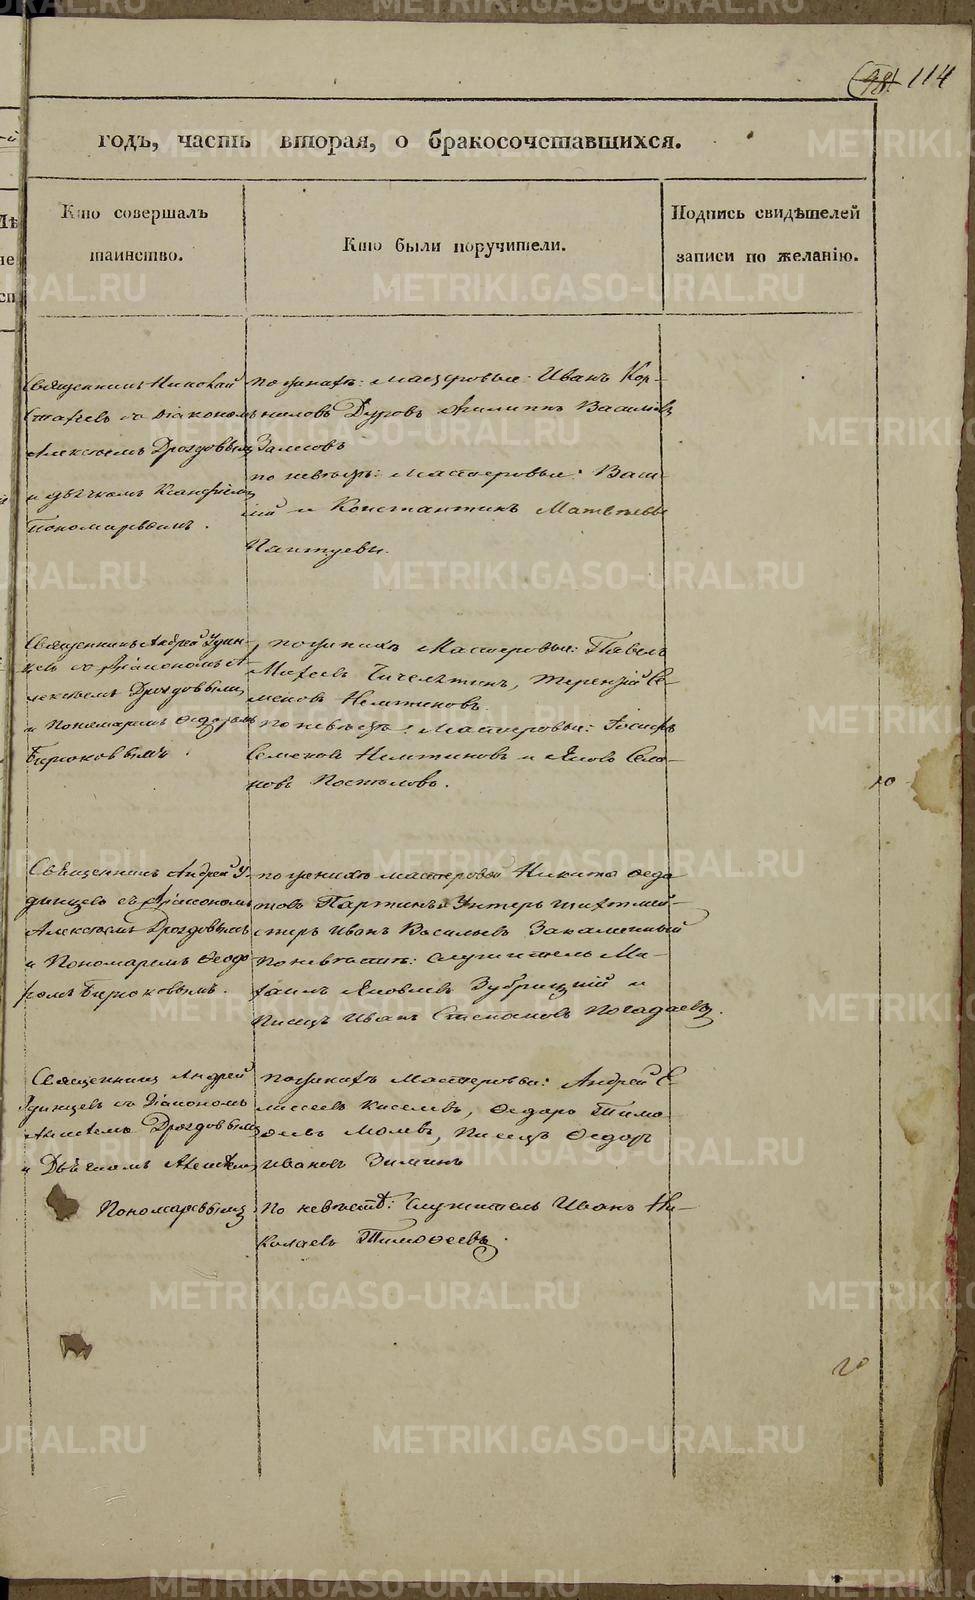 114
годъ, часть вторая, о бракосочетавшихся.
Кто совершалъ
таинство.
Кто были поручители.
Подпись свидѣтелей
записи по желанію.
Священникъ Николай
діакономъ
Алексѣемъ Дроздовымъ
и дьячкомъ
Пономаревымъ.
по женихѣ: Мастеровые: Иванъ Кор-
ниловъ Дуровъ Филиппъ Василіевъ
Залесовъ
по невѣстѣ: Мастеровые: Васи-
лій и Константинъ Матвѣевы
Пантуевы.
Священникъ Андрей Удин-
цевъ со Діакономъ А-
лексѣемъ Дроздовымъ
и Пономаремъ Ѳедоромъ
Бирюковымъ.
по женихѣ Мастеровые: Павелъ
Михеевъ, Терентій Се-
меновъ Немтиновъ.
По невѣстѣ: Мастеровые: Іосифъ
Семеновъ Немтиновъ и Яковъ Семе-
новъ Постыловъ.
10
Священникъ Андрей У-
динцевъ съ Діакономъ
Алексѣемъ Дроздовымъ
и Пономаремъ Ѳеодо
ромъ Бирюковымъ.
по женихѣ мастеровой Никита Ѳедо
товъ Партинъ и Унтеръ шихтмей-
стеръ Иванъ Васильевъ Закаменный
По невѣстѣ: служитель Ми-
хаилъ Яковлевъ Зубрицкій и
Писецъ Иванъ Степановъ Погадаевъ.
Священникъ Андрей
Удинцевъ со Діакономъ
Алексѣемъ Дроздовымъ
и Дьячкомъ
Пономаревымъ
по женихѣ Мастеровые: Андрей Е-
лисеевъ Киселевъ, Ѳедоръ Тимо-
ѳеевъ, Писецъ Ѳедоръ
Ивановъ Зиминъ
По невѣстѣ: Служитель Иванъ Ни-
колаевъ Тимоѳеевъ.
20
METRIKI.GASO-URAL.RU